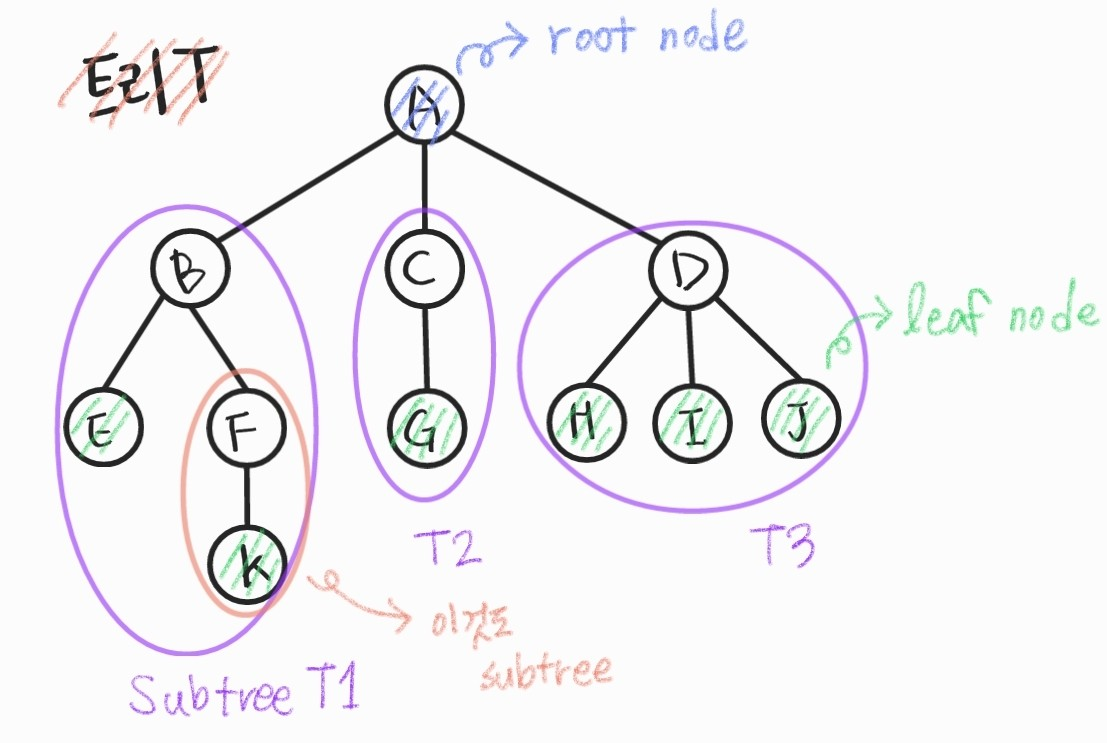 트리 T
root node
A
B
C
D
leaf node
E
F
G
H
I
J
K
T2
T3
이것도
subtree
Subtree T1